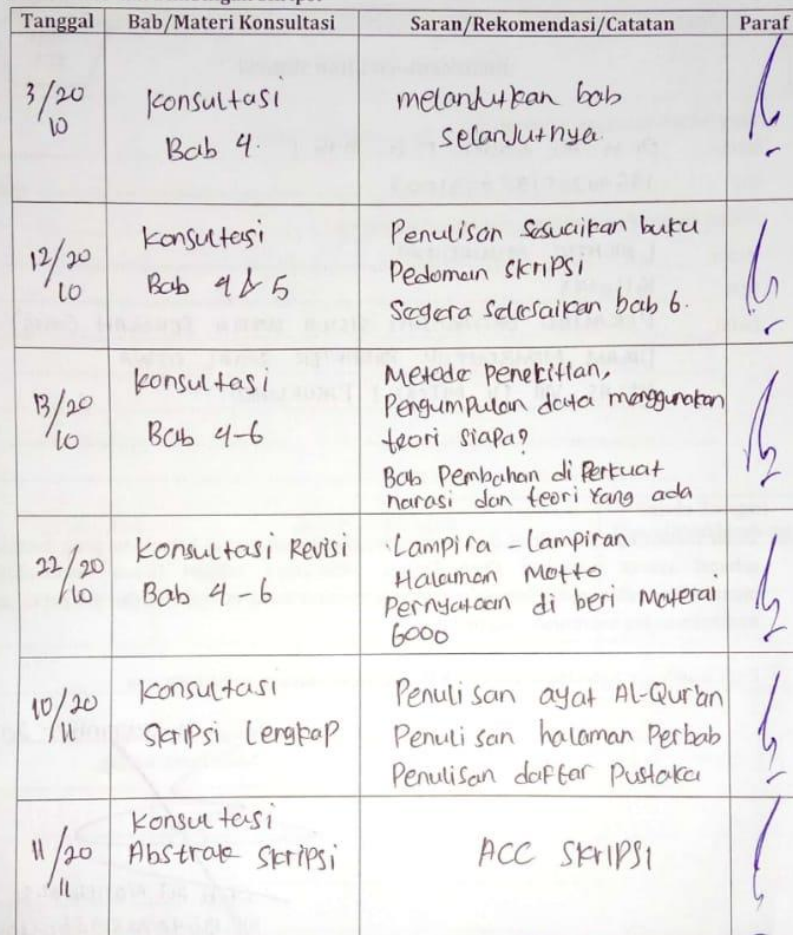 Tanggal Bab/Materi Konsultasi Saran/Rekomendasi/Catatan Paraf
3/20
10
Konsultasi
Bab 4.
melanjutkan bab
selanjutnya.
12/20
10
Konsultasi
Bab 4 & 5
Penulisan Sesuaikan buku
Pedoman skripsi
Segera Selesaikan bab 6.
13/20
10
Konsultasi
Bab 4-6
Metode Penelitian,
Pengumpulan data menggunakan
teori siapa?
Bab Pembahan di Perkuat
narasi dan teori Yang ada
22/20
10
Konsultasi Revisi
Bab 4-6
Lampira - Lampiran
Halaman Motto
Pernyataan di beri Materai
6000
10/20
11
Konsultasi
Skripsi Lengkap
Penulisan ayat Al-Qur'an
Penulisan halaman Perbab
Penulisan daftar Pustaka
11/20
11
Konsultasi
Abstrak Skripsi
ACC SKRIPSI